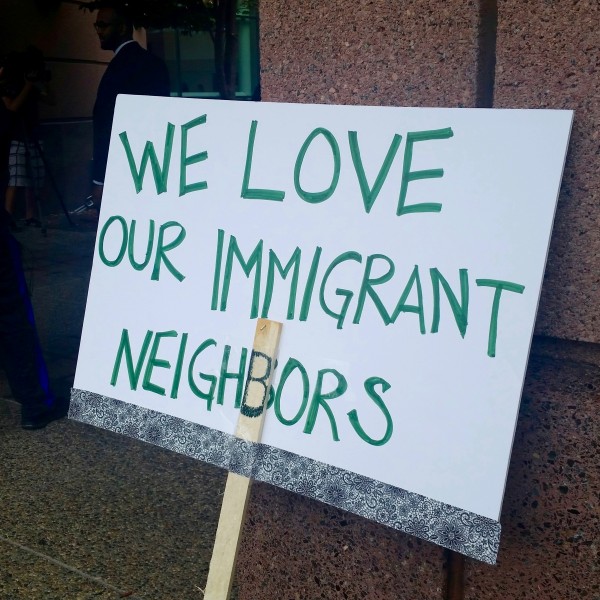 WE LOVE
OUR IMMIGRANT
NEIGHBORS